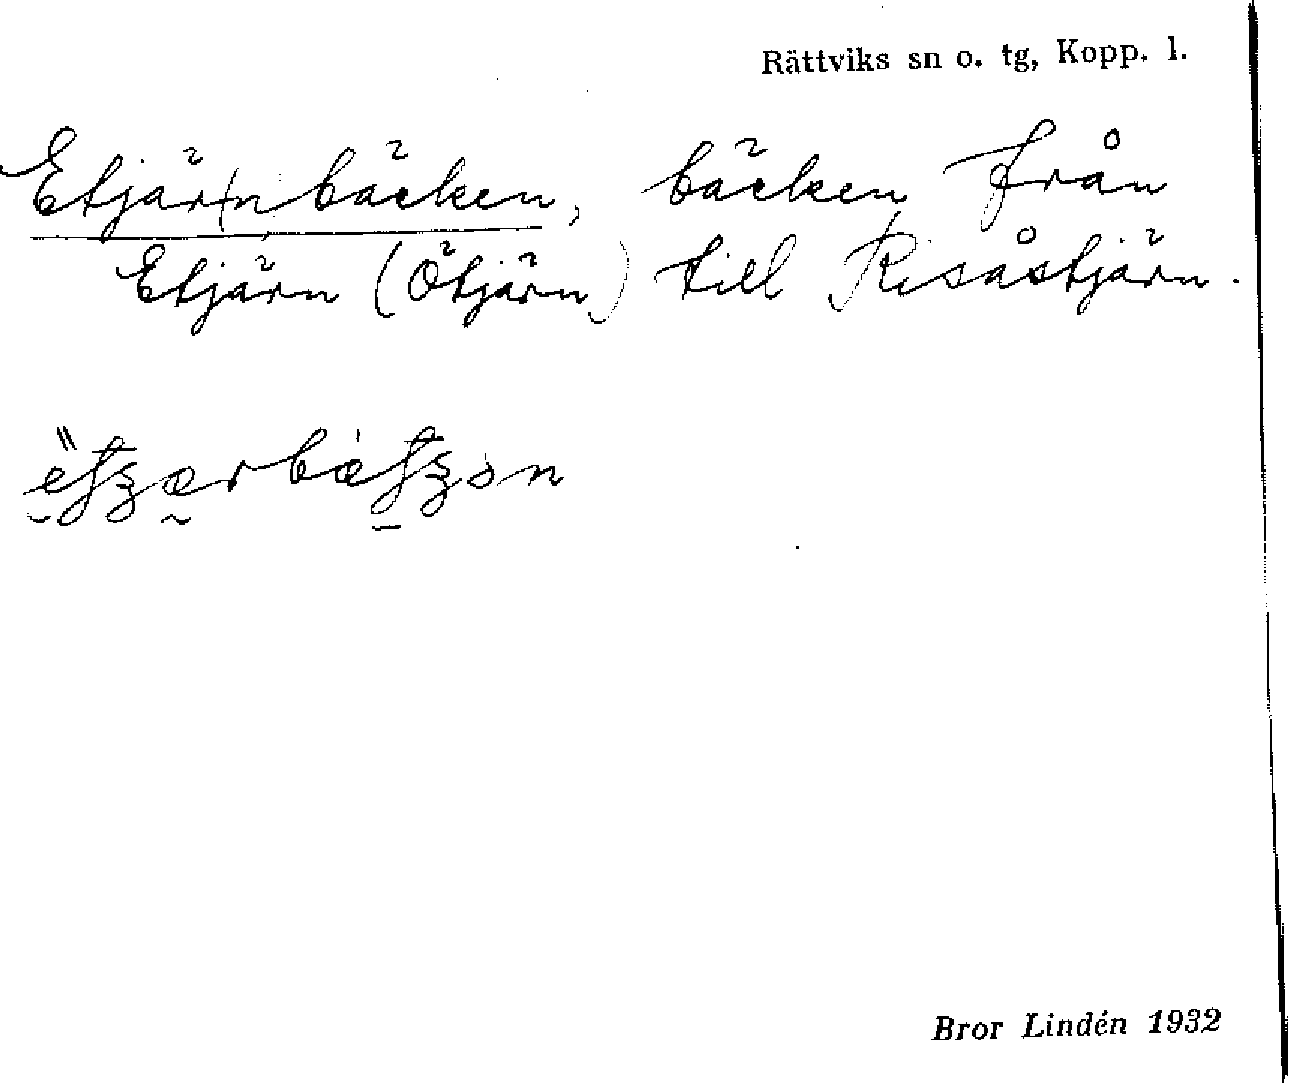 Rättviks sn o. tg, Kopp. l.
Etjär(nbäcken, bäcken från
Etjärn (Ötjärn) till Risåstjärn.
Bror Lindén 1932